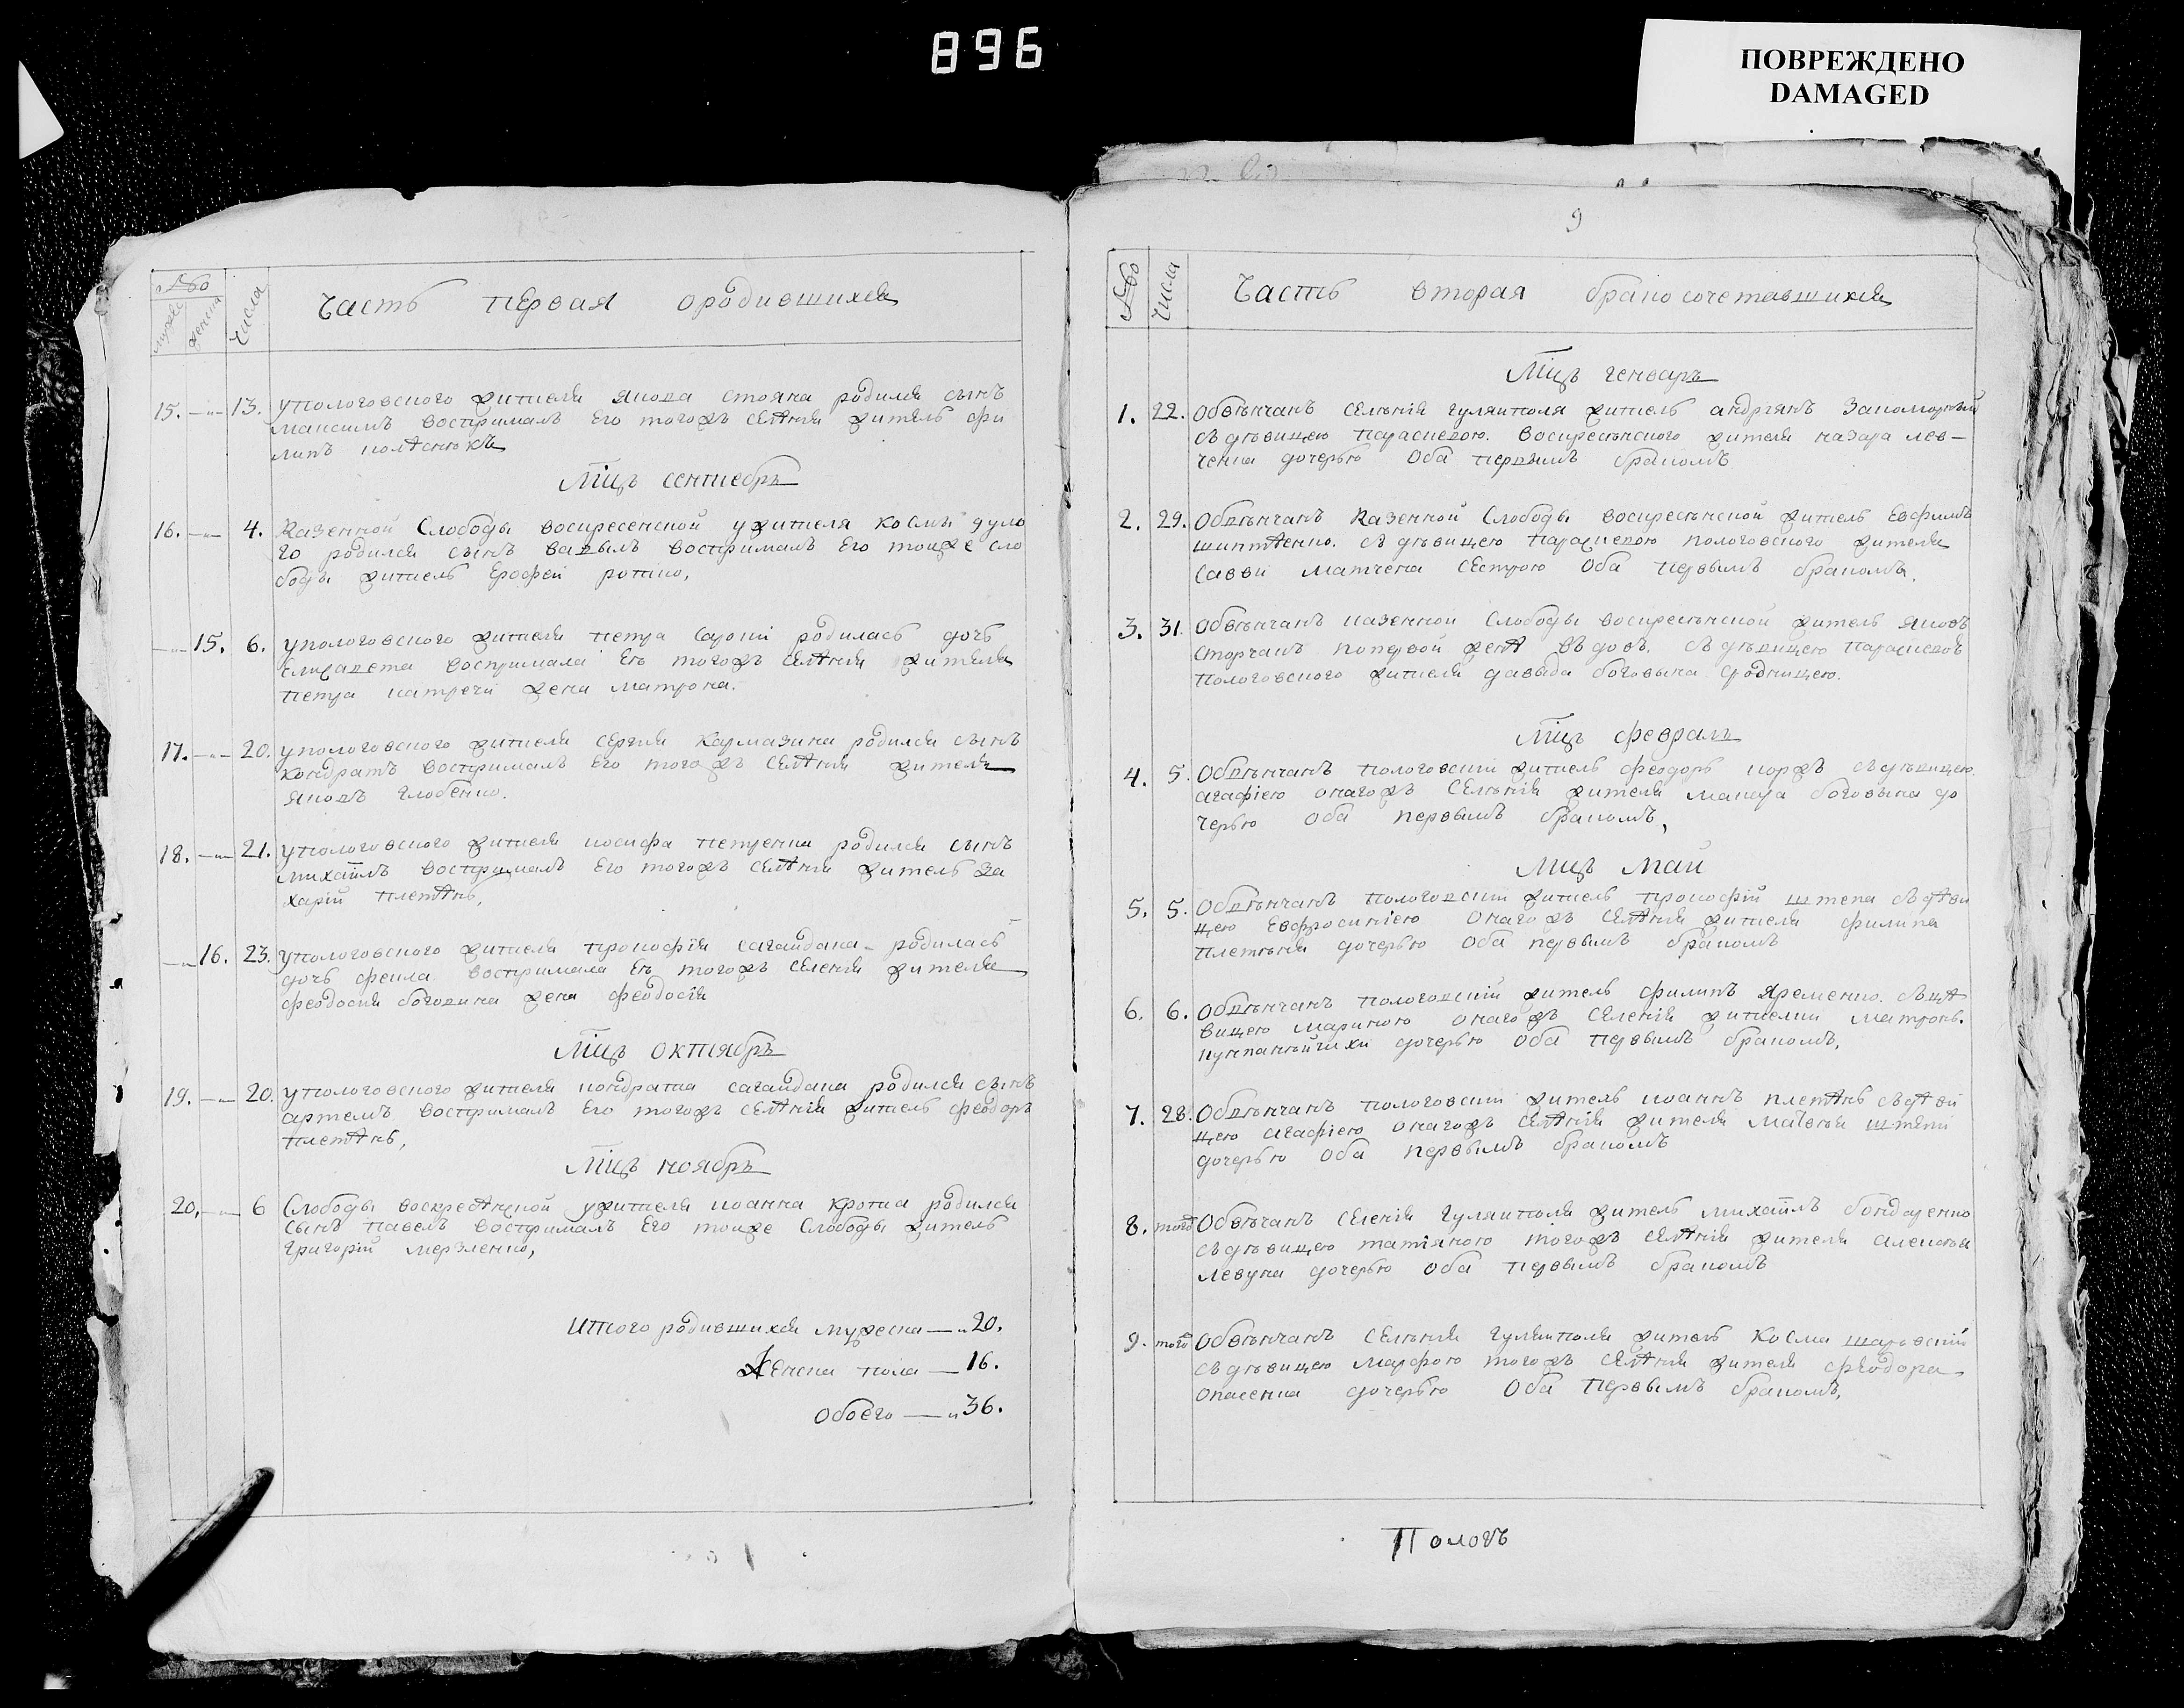 896
ПОВРЕЖДЕНО
DAMAGED
№бо
мужес
женска
Числа
Часть первая ородившихся
15. — 13. упологовского жителя якова стояна родился сынъ
максимъ восприималъ Его тогожъ селѣния житель фи
липъ
Мцъ сентебръ
16. — 4. Казенной Слободы воскресенской ужителя космы дуло
го родился сынъ восприималъ Его тоиже сло
боды житель Ерофей ротко,
— 15. 6. упологовского жителя петра родилась дочь
Елисавета восприимала Ею тогожъ селѣния жителя
петра жена матрона.
17. — 20. упологовского жителя сергия Кармазина родился сынъ
Кондратъ восприималъ Его тогожъ селѣния жителя
яковъ глобенко.
18. — 21. упологовского жителя иосифа петренка родился сынъ
михаилъ восприималъ Его тогожъ селѣния житель за
харій плетѣнь,
— 16. 23. упологовского жителя прокофія сагайдака родилась
дочь фекла восприимала Ею тогожъ селения жителя
феодосия боговина жена феодосія
Мцъ октябръ
19. — 20. упологовского жителя кондрата сагайдака родился сынъ
артемъ восприималъ Его тогожъ селѣнія житель феодоръ
плетѣнь,
Мцъ ноябръ
20. — 6 Слободы воскресѣнской ужителя иоанна кротка родился
сынъ павелъ восприималъ Его тоиже Слободы житель
григорій мерзленко,
Итого родившихся мужеска — 20.
Женска пола — 16.
Обоего — 36.
9
№бо
Числа
Часть вторая бракосочетавшихся
Мцъ генваръ
1. 22. Обвѣнчанъ селѣнія гуляиполя житель андріянъ
съ дѣвицею параскевою. воскресѣнского жителя назара лев-
ченка дочерью Оба первымъ бракомъ
2. 29. Обвѣнчанъ Казенной Слободы воскресѣнской житель Евфимъ
съ дѣвицею параскевою пологовского жителя
саввы матчена сестрою Оба первымъ бракомъ,
3. 31. Обвѣнчанъ казенной Слободы воскресѣнской житель яковъ
сторчакъ попервой женѣ вдовъ, съ дѣвицею параскевою
пологовского жителя давыда боговына сродницею.
Мцъ февраль
4. 5. Обвѣнчанъ пологовскій житель феодоръ коржъ съ дѣвицею
агафіею онагожъ селѣнія жителя боговына до
черью Оба первымъ бракомъ,
Мцъ май
5. 5. Обвѣнчанъ пологовскій житель прокофій штепа съ дѣви
цею Евфросиніею онагожъ селѣнія жителя филипа
плетѣня дочерью оба первымъ бракомъ
6. 6. Обвѣнчанъ пологовскій житель филипъ яременко. съ дѣ
вицею мариною онагожъ селенія матроны.
дочерью оба первымъ бракомъ,
7. 28. Обвѣнчанъ пологовскій житель иоаннъ плетѣнь съ дѣви
цею агафіею онагожъ селѣнія жителя матвея штепы
дочерью оба первымъ бракомъ
8. тогож Обвѣнчанъ селенія гуляиполя житель михаилъ бондаренко
съ дѣвицею татіяною тогожъ селѣнія жителя алексея
левука дочерью оба первымъ бракомъ
9. тогож Обвѣнчанъ селѣния гуляиполя житель Косма шаровскій
съ дѣвицею марфою тогожъ селѣния жителя феодора
опасенка дочерью Оба первымъ бракомъ,
Пологъ